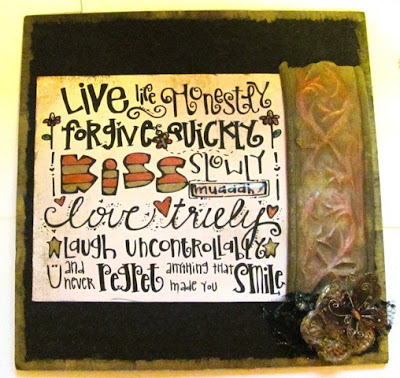 Live life Honestly
forgive Quickly
Kiss Slowly
muaaah!
love truely
Laugh uncontrollably
and never regret anything that made you smile